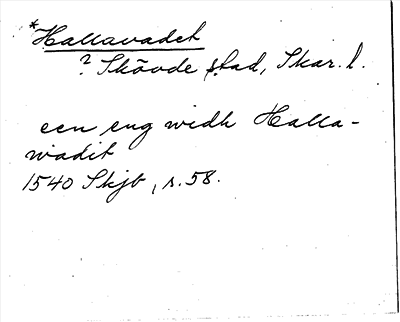 *Hallavadet
? Skövde stad, Skar. l.
een eng widh Halla-
wadit
1540 Skjb, s. 58.